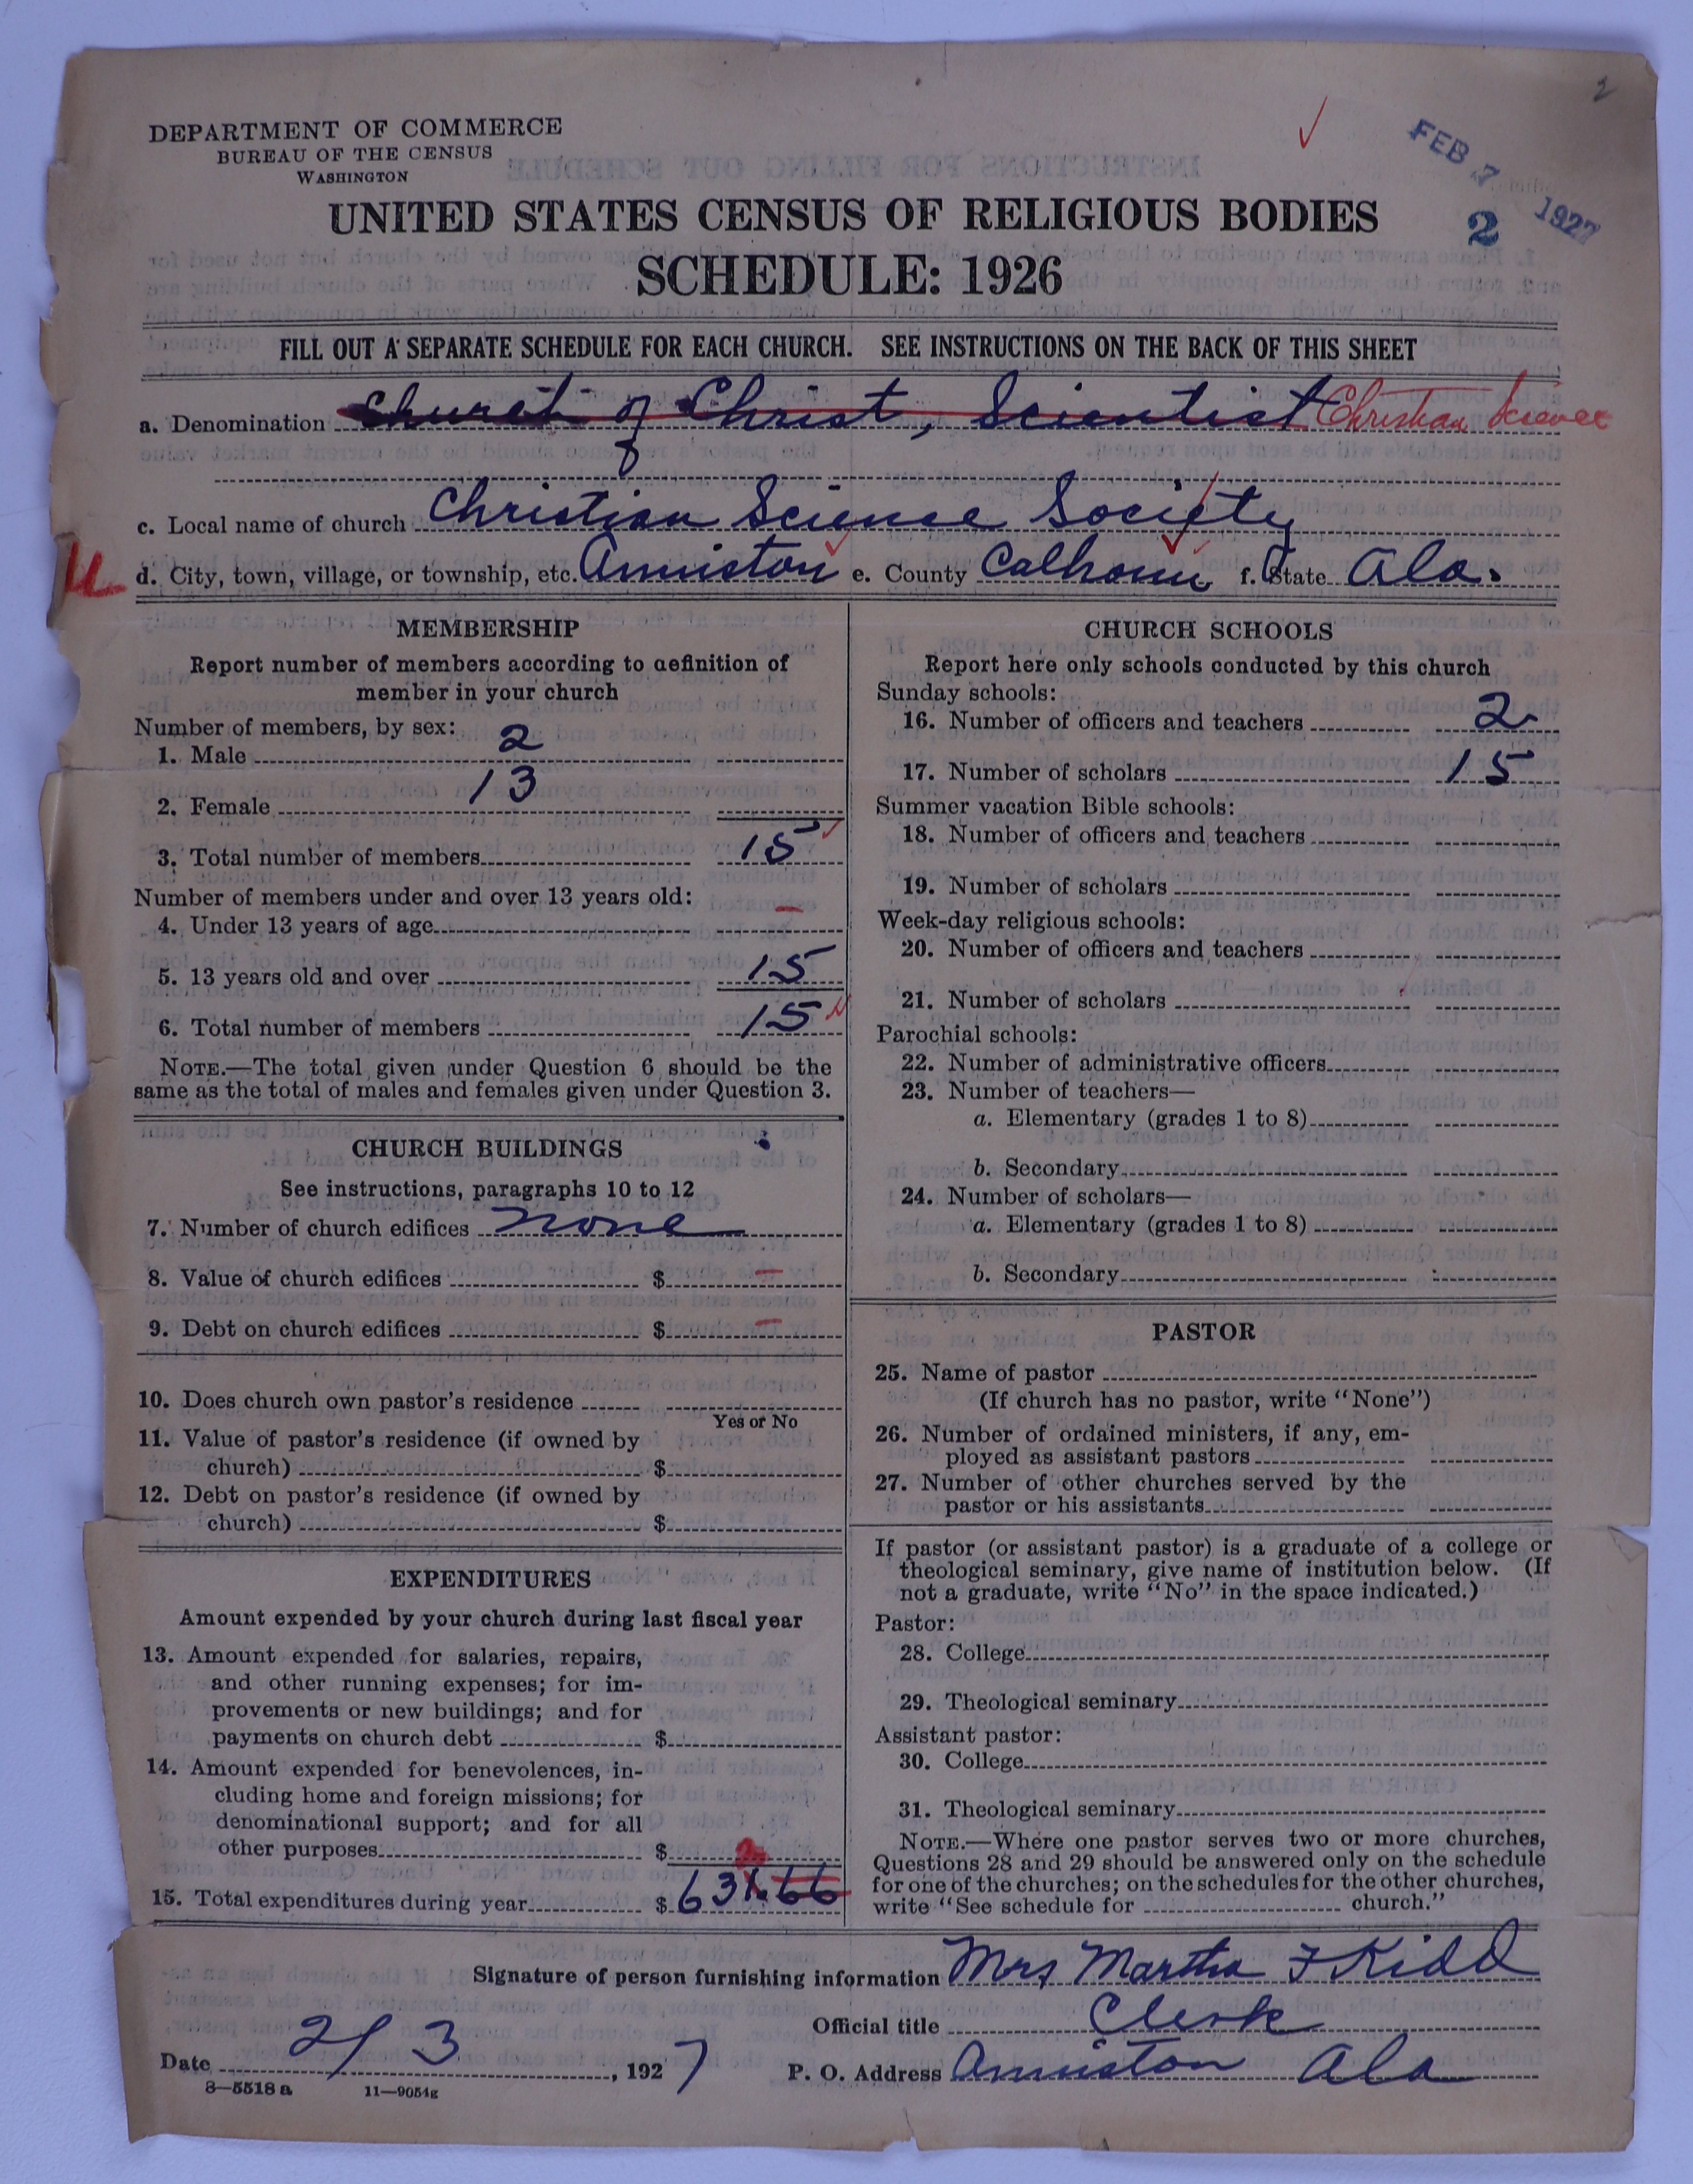 2
DEPARTMENT OF COMMERCE
BUREAU OF THE CENSUS
WASHINGTON
FEB 7 1927
2
UNITED STATES CENSUS OF RELIGIOUS BODIES
SCHEDULE: 1926
FILL OUT A SEPARATE SCHEDULE FOR EACH CHURCH. SEE INSTRUCTIONS ON THE BACK OF THIS SHEET
a. Denomination Church of Christ, Scientist Christian Science
c. Local name of church Christian Science Society
d. City, town, village, or township, etc. Anniston e. County Calhoun f. State Ala.
MEMBERSHIP
Report number of members according to definition of
member in your church
Number of members, by sex:
1. Male 2
2. Female 13
3. Total number of members 15
Number of members under and over 13 years old:
4. Under 13 years of age –
5. 13 years old and over 15
6. Total number of members 15
NOTE.—The total given under Question 6 should be the
same as the total of males and females given under Question 3.
CHURCH BUILDINGS
See instructions, paragraphs 10 to 12
7. Number of church edifices none
8. Value of church edifices $ –
9. Debt on church edifices $ –
10. Does church own pastor's residence
Yes or No
11. Value of pastor's residence (if owned by
church) $
12. Debt on pastor's residence (if owned by
church) $
EXPENDITURES
Amount expended by your church during last fiscal year
13. Amount expended for salaries, repairs,
and other running expenses; for im-
provements or new buildings; and for
payments on church debt $
14. Amount expended for benevolences, in-
cluding home and foreign missions; for
denominational support; and for all
other purposes $
15. Total expenditures during year $ 631.66
CHURCH SCHOOLS
Report here only schools conducted by this church
Sunday schools:
16. Number of officers and teachers 2
17. Number of scholars 15
Summer vacation Bible schools:
18. Number of officers and teachers
19. Number of scholars
Week-day religious schools:
20. Number of officers and teachers
21. Number of scholars
Parochial schools:
22. Number of administrative officers
23. Number of teachers—
a. Elementary (grades 1 to 8)
b. Secondary
24. Number of scholars—
a. Elementary (grades 1 to 8)
b. Secondary
PASTOR
25. Name of pastor
(If church has no pastor, write "None")
26. Number of ordained ministers, if any, em-
ployed as assistant pastors
27. Number of other churches served by the
pastor or his assistants
If pastor (or assistant pastor) is a graduate of a college or
theological seminary, give name of institution below. (If
not a graduate, write "No" in the space indicated.)
Pastor:
28. College
29. Theological seminary
Assistant pastor:
30. College
31. Theological seminary
NOTE.—Where one pastor serves two or more churches,
Questions 28 and 29 should be answered only on the schedule
for one of the churches; on the schedules for the other churches,
write "See schedule for church."
Signature of person furnishing information Mrs Martha F Kidd
Official title Clerk
Date 2/3, 1927 P. O. Address Anniston Ala
8—5518 a 11—9054g